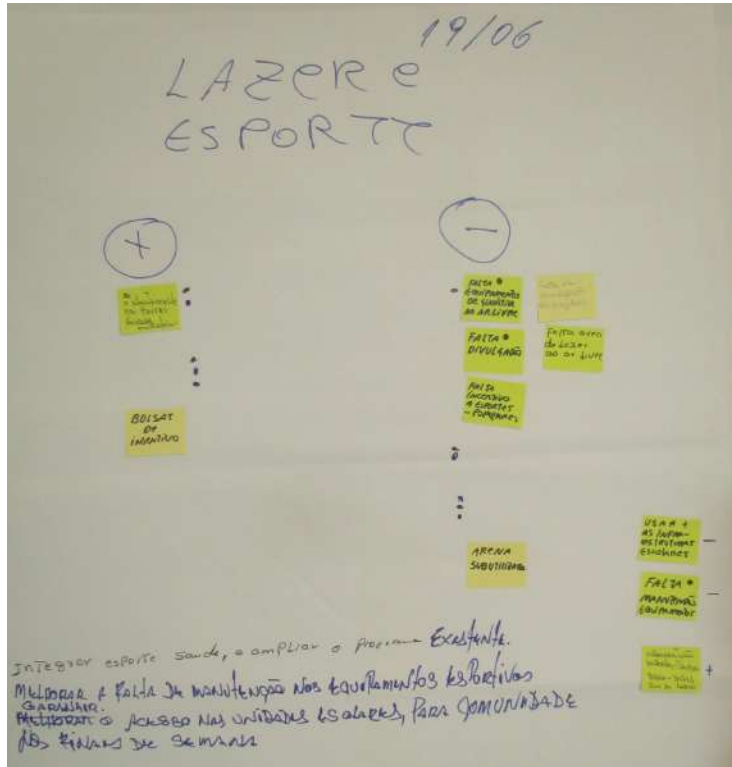 19/06
LAZER E
ESPORTE
+
-
BOLSAS
DE
INCENTIVO
FALTA
EQUIPAMENTO
DE GINÁSTICA
AO AR LIVRE
FALTA
DIVULGAÇÃO
Falta área
de Lazer
ao ar Livre
FALTA
INCENTIVO
A ESPORTES
- POPULARES
ARENA
SUBUTILIZADA
USAR +
AS INFRA-
ESTRUTURAS
ESCOLARES
-
FALTA
MANUTENÇÃO
EQUIPAMENTOS
-
+
Integrar esporte saude, e ampliar o programa Existente.
MELHORAR A FALTA DE MANUTENÇÃO NOS EQUIPAMENTOS ESPORTIVOS
GARANTIR.
MELHORAR O ACESSO NAS UNIDADES ESCOLARES, PARA COMUNIDADE
NOS FINAIS DE SEMANA